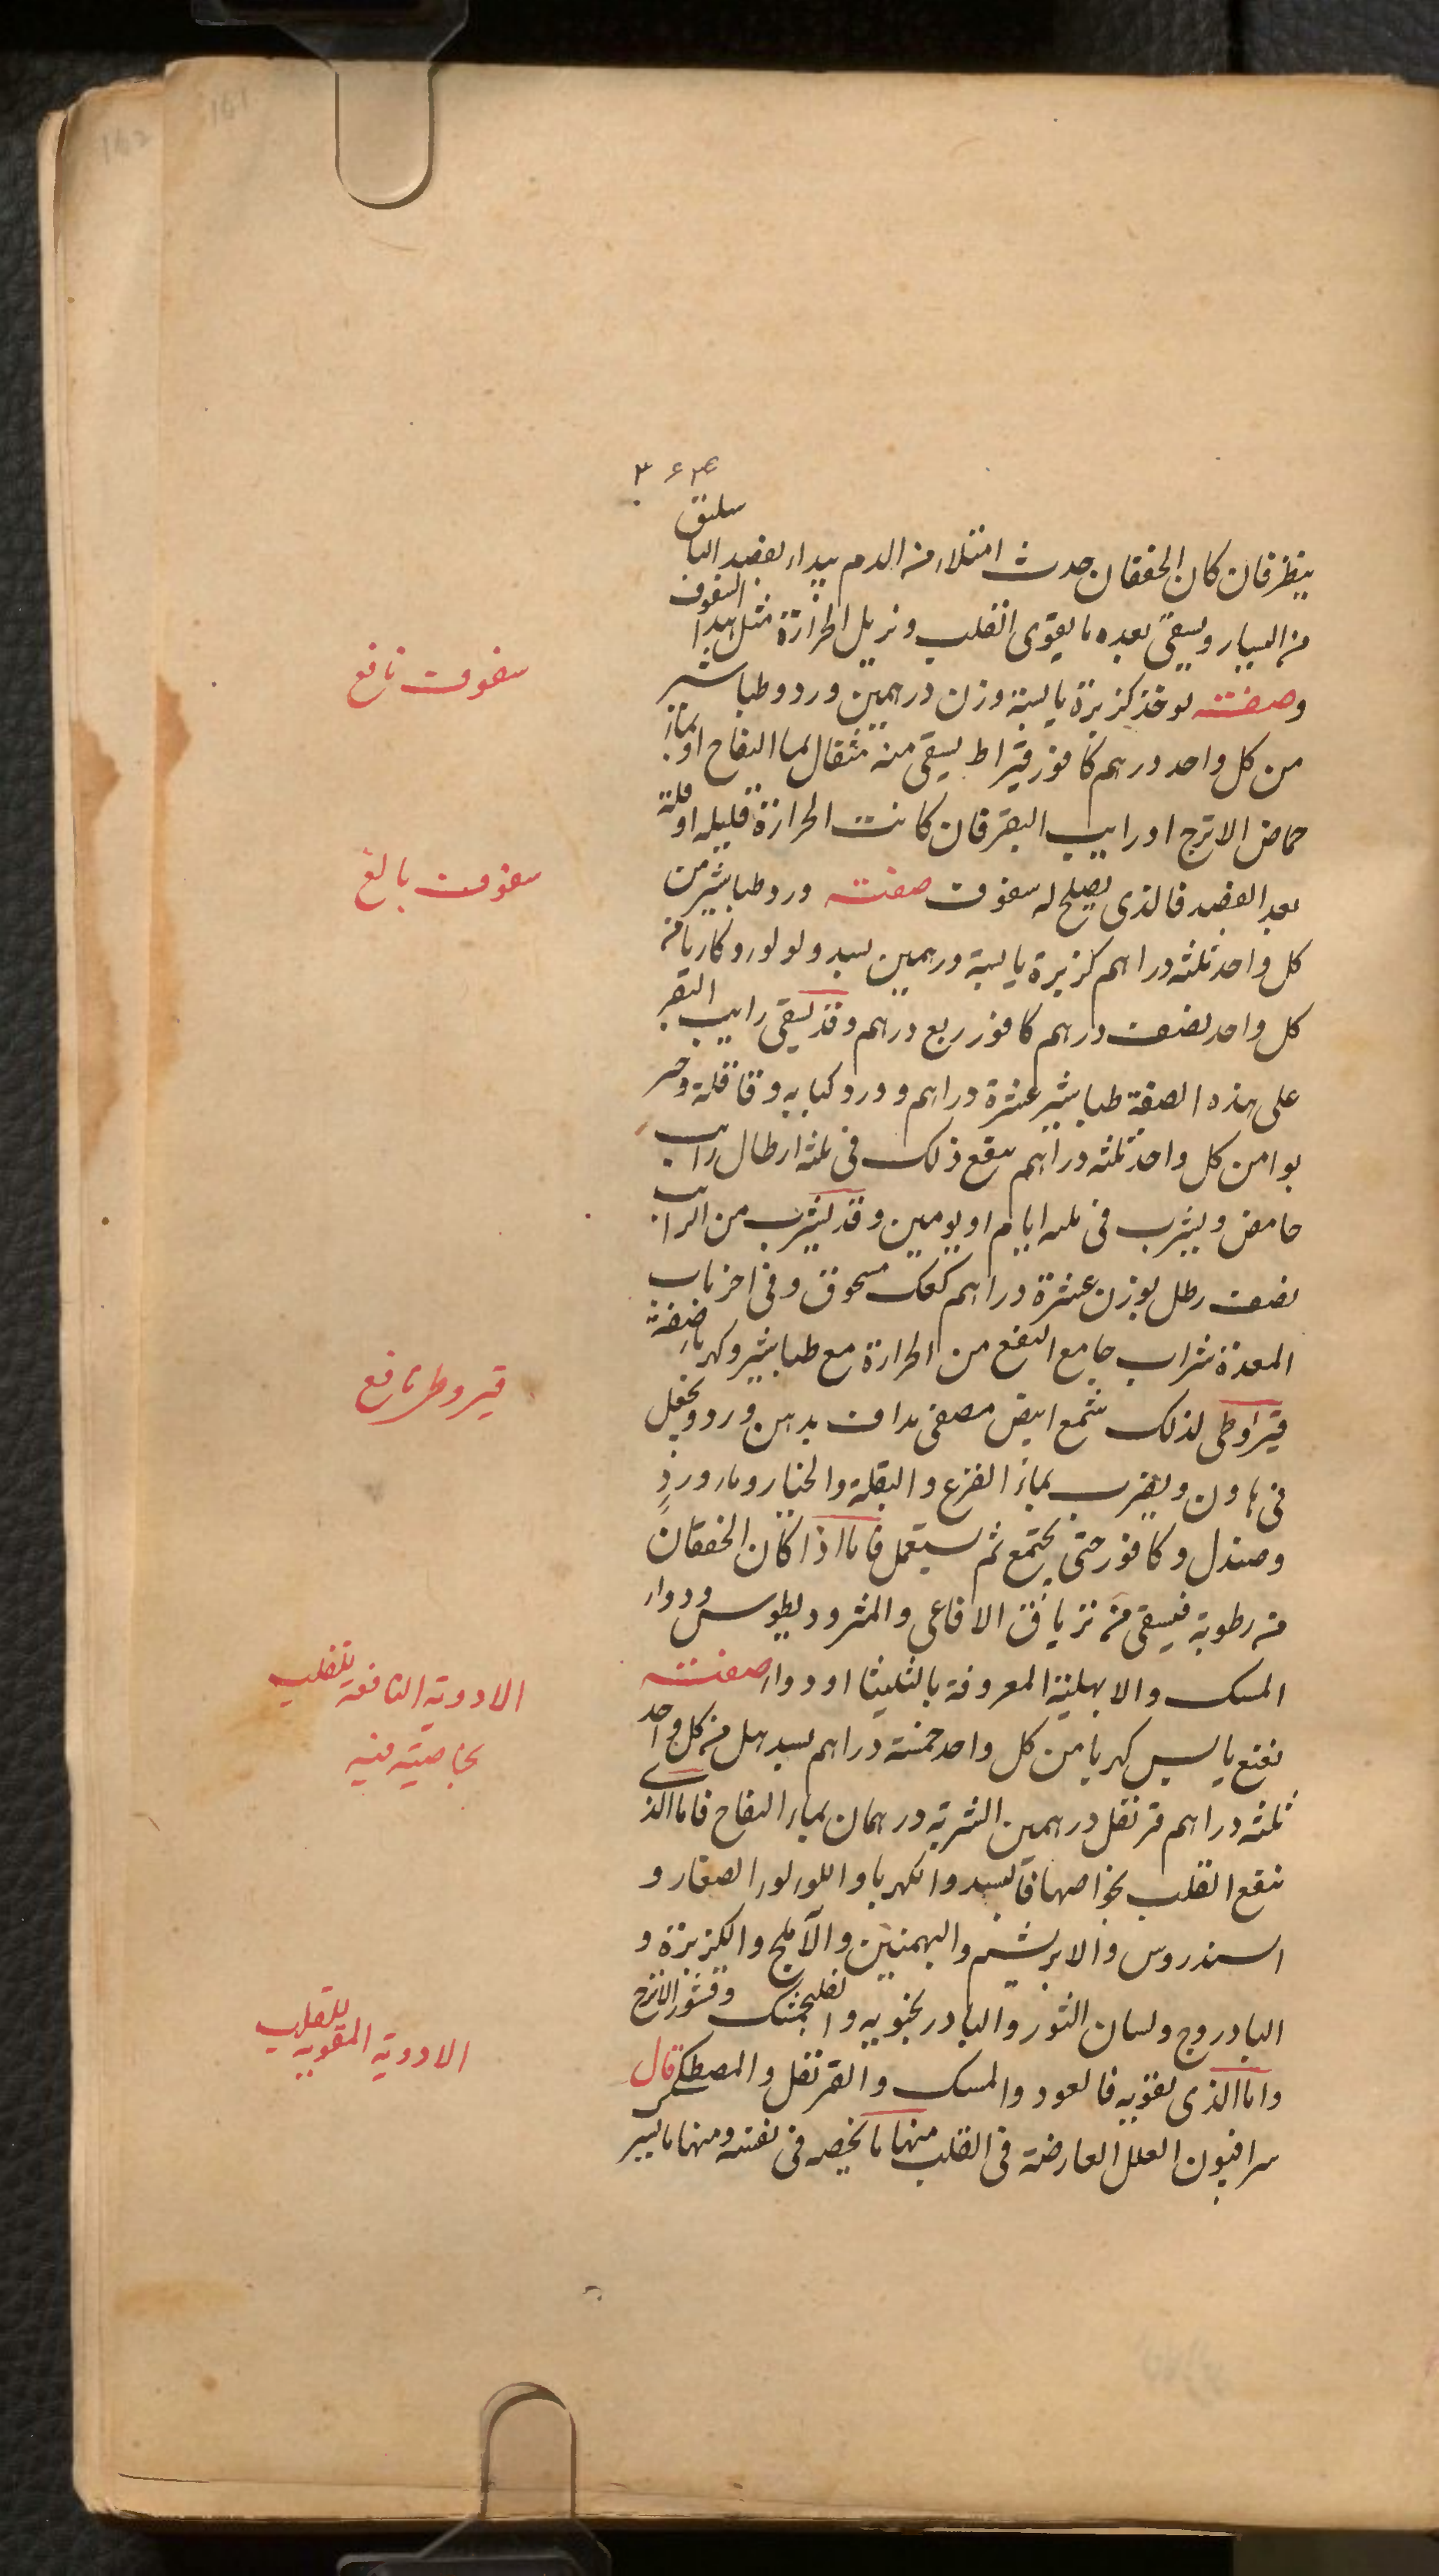 ينظر فان كان الخفقان حدث امتلاء من الدم يبداء بفصد الباسليق
من اليسار ويسقى بعده ما يقوى القلب ونزيل الحرارة مثل هذا السفوف
سفوف نافع
وصفته يوخذ كزبرة يابسة وزن درهمين ورد وطباشير
من كل واحد درهم كافور قيراط يسقى منه مثقال بما التفاح او بماء
حماض الاترج او رايب البقر فان كانت الحرارة قليله او قلة
سفوف بالغ
بعد الفصد فالذى يصلح له سفوف صفته ورد طباشير من
كل واحد ثلثه دراهم كزبرة يابسة درهمين بسد ولولوء وكاربا من
كل واحد نصف درهم كافور ربع درهم وقد يسقى رايب البقر
على هذه الصفة طباشير عشرة دراهم وورد كبابه وقاقلة وخير
بوا من كل واحد ثلثه دراهم ينقع ذلك فى ثلثه ارطال رايب
حامض ويشرب فى ثلثه ايام او يومين وقد يشرب من الرايب
نصف رطل بوزن عشرة دراهم كعك مسحوق وفى اخر باب
المعدة شراب جامع النفع من الحرارة مع طباشير وكهربا صفة
قيروطى نافع
قيراوطى لذلك شمع ابيض مصفى يداف بدهن ورد ويجعل
فى هاون ويضرب بماء القرع والبقلة والخيار وماء ورد
وصندل وكافور حتى يجتمع ثم يستعمل فاما اذا كان الخفقان
من رطوبة فيسقى من ترياق الافاعى والمثروديطوس ودواء
الادوية النافعة للقلب
بخاصية فيه
المسك والابهلية المعروفة بالثليثا او دواء صفته
نعنع يابس كهربا من كل واحد خمسة دراهم بسد هل من كل واحد
ثلثه دراهم قرنفل درهمين الشربة درهمان بماء التفاح فاما الذى
ينفع القلب بخواصها فالبسد والكهربا واللولوء الصغار و
السندروس والابريشم والبهمنين والآملج والكزبزة و
البادروج ولسان الثور والبادرنجبويه والفلنجمشك وقشور الاترج
الادوية المقويه للقلب
واما الذى يقويه فالعود والمسك والقرنفل والمصطكى قال
سرافيون العلل العارضة فى القلب منها ما يخصه فى نفسه ومنها ما يسير